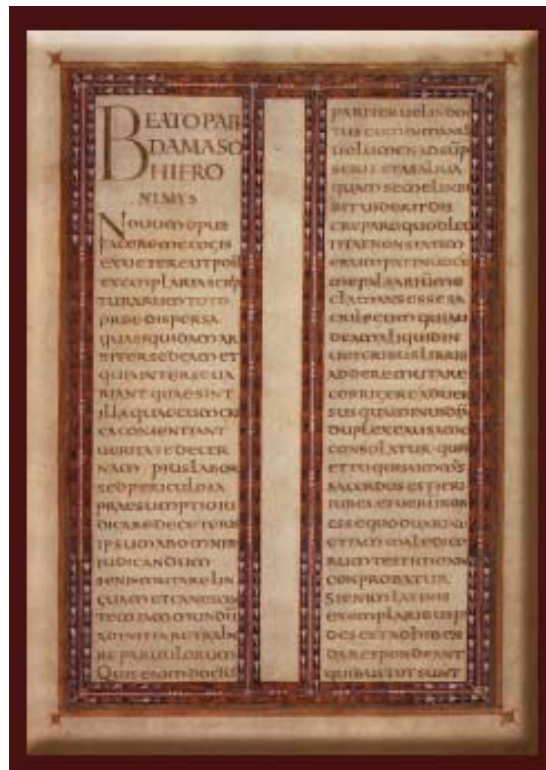 BEATO PAP
DAMASO
HIERO
NIMUS
Nouum opus
facere me cogis
ex uetere ut pos̄
exemplaria scrip
turarum toto
orbe dispersa
quasi quidam ar
biter sedeam et
quia inter se ua
riant quae sint
illa quae cum
ca consentiant
ueritate decer
nam pius labor
sed periculosa
praesumptio iu
dicare de ceteris
ipsum ab omnib
iudicandum
senis mutare lin
guam et canescen
mundū
ad initia retrahe
re paruulorum
Quis enim doctus
pariter uel indoc
tus cum in manus
uolumen adsūp
serit et a saliua
quam semel inbi
bit uiderit dis
crepare quod lec
titat non statim
erumpat in uoce
me falsariū me
clamans esse sa
crilegum qui au
deam aliquid in
ueteribus libris
addere mutare
corrigere aduer
sus quam
duplex causa me
consolatur quod
et tu qui
sacerdos es fieri
iubes et uerum non
esse quod uariat
etiam maledico
rum testimonio
conprobatur
Si enim latinis
exemplaribus
des est adhiben
da respondeant
quibus tot sunt